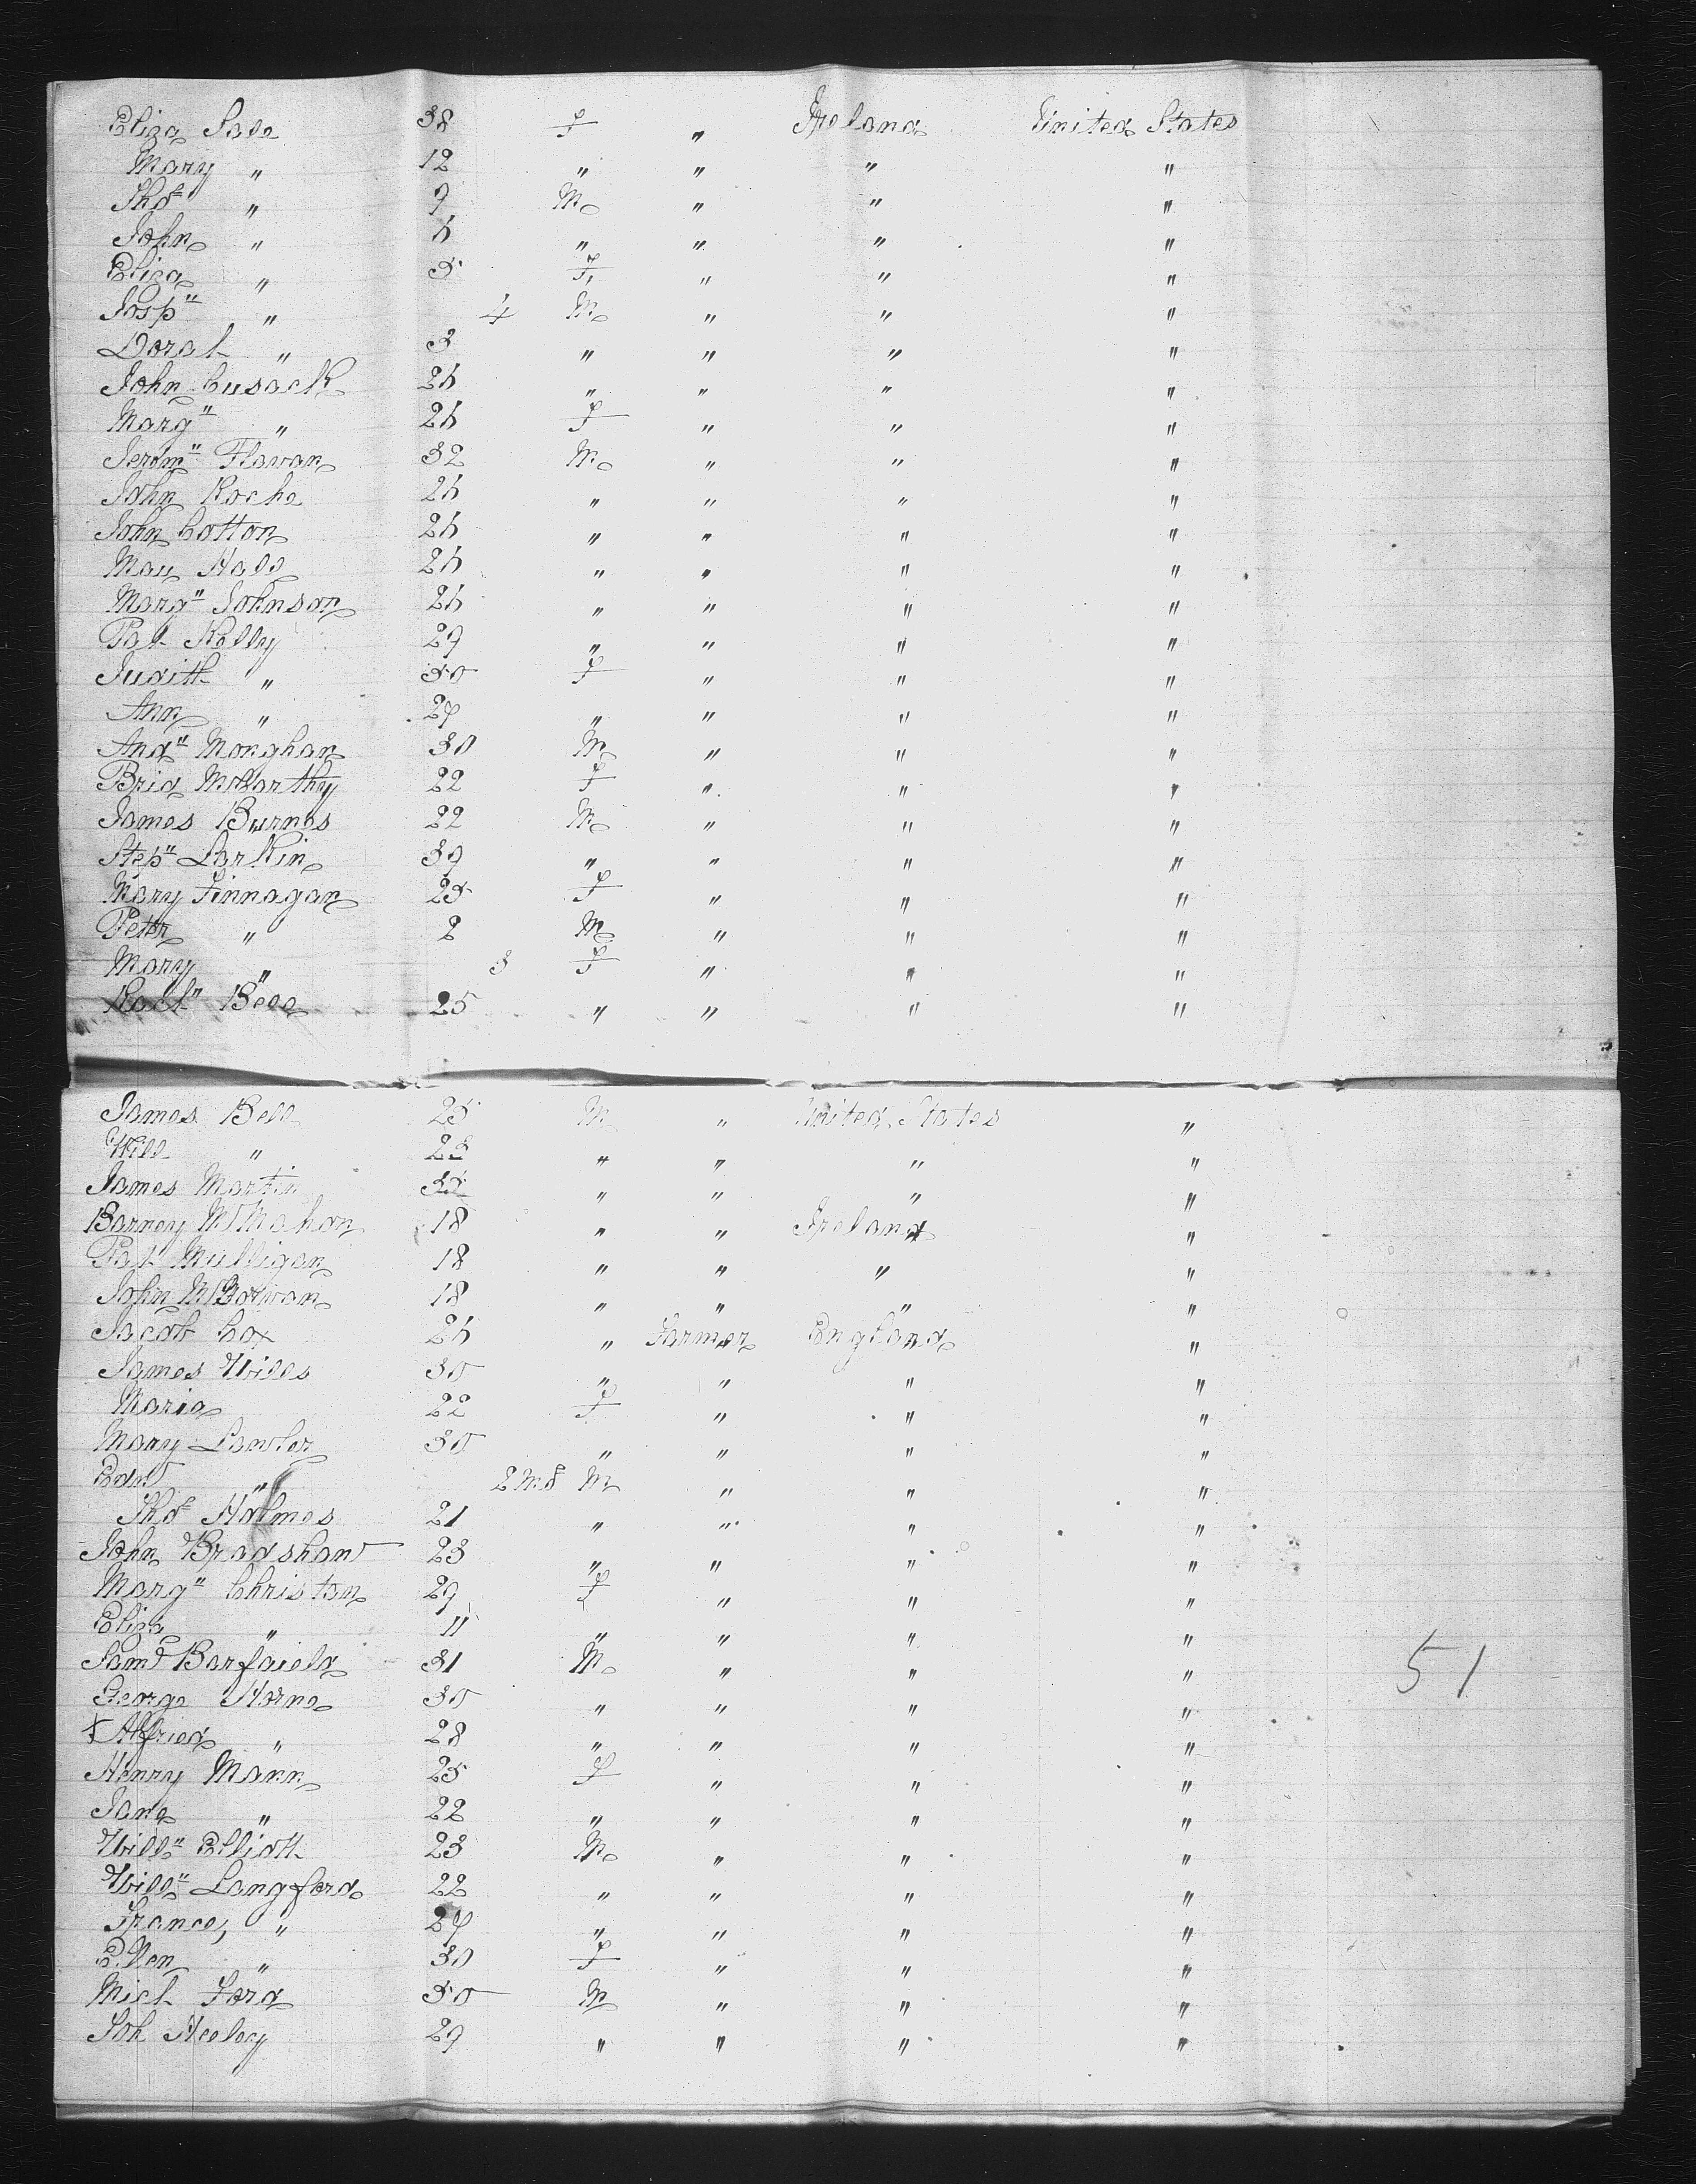 Eliza Sale 38 f " Ireland United States
Mary " 12 " " " "
Thos " 9 M " " "
John " 6 " " " "
Eliza " 5 f " " "
Josph " 4 M " " "
Dorah " 3 " " " "
John Cusack 26 " " " "
Margt " 26 f " " "
Jerómh Flavan 32 M " " "
John Roche 26 " " " "
John Cotton 26 " " " "
May Hall 26 " " " "
Margt Johnson 26 " " " "
Pat Kelly 29 " " " "
Judith " 30 f " " "
Ann " 24 " " " "
Andw Monghan 30 M " " "
Brid McCarthy 22 f " " "
James Burnes 22 M " " "
Stepn Larkin 39 " " " "
Mary Finnagan 25 f " " "
Peter " 2 M " " "
Mary " 3 f " " "
Bell 25 " " " "
James Bell 25 M " United States "
Will " 23 " " " "
James Martin " " " "
Barney McMahon 18 " " Ireland "
Pat Mulligan 18 " " " "
John 18 " " " "
Jacob Cox 26 " Farmer England "
James Wills 30 " " " "
Maria 22 f " " "
Mary Lawler 30 " " " "
Edwd " 2 Ms M " " "
Thos Holmes 21 " " " "
John Bradshaw 23 " " " "
Margt Christan 29 f " " "
Eliza " 11 " " " "
Saml Barfaield 31 M " " "
George Horne 30 " " " "
+ Alfried " 28 " " " "
Henry Mann 25 f " " "
Jane " 22 " " " "
Willm Elliott 23 M " " "
Willm Langford 22 " " " "
Frances " 24 " " " "
Ellen " 30 f " " "
Mich Ford 30 M " " "
Joh Heeley 29 " " " "
51